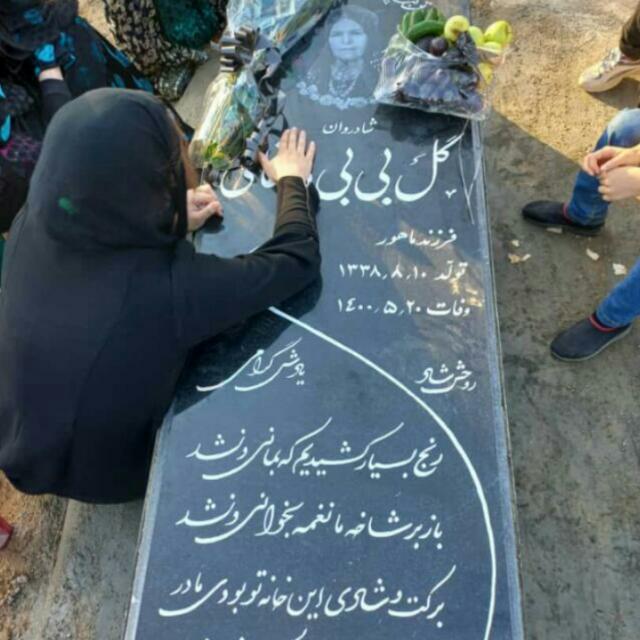 شادروان
گل بی بی
فرزند ماهور
تولد ۱۳۳۸٫۸٫۱۰
وفات ۱۴۰۰٫۵٫۲۰
روحش شاد یادش گرامی
رنج بسیار کشیدیم که بمانی و نشد
باز بر شاخه ما نغمه بخوانی و نشد
برکت و شادی این خانه تو بودی مادر